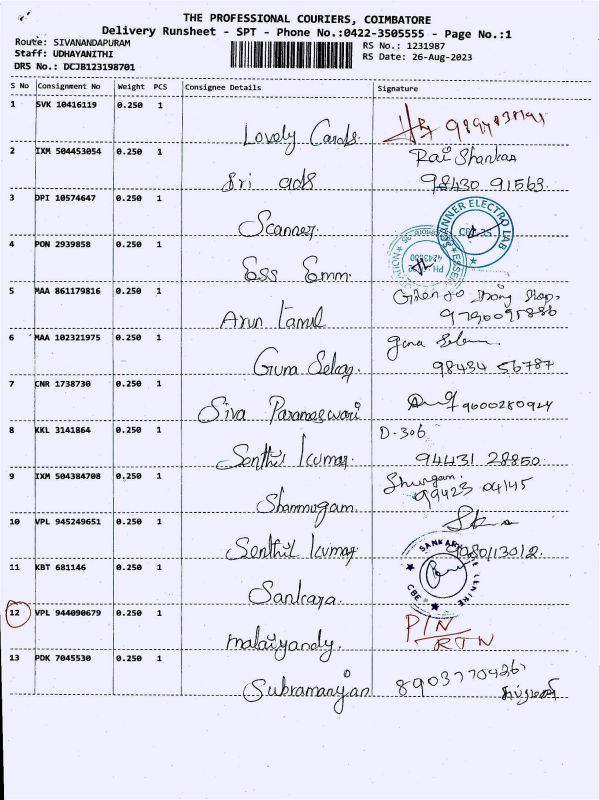 THE PROFESSIONAL COURIERS, COIMBATORE
Delivery Runsheet - SPT - Phone No.:0422-3505555 - Page No.:1
Route: SIVANANDAPURAM
Staff: UDHAYANITHI
DRS No.: DCJB123198701
RS No.: 1231987
RS Date: 26-Aug-2023
S No Consignment No Weight PCS Consignee Details Signature
1 SVK 10416119 0.250 1
Lovely Cards
2 IXM 504453054 0.250 1 Rai Shankar
Sri ads 98430 91563
3 DPI 10574647 0.250 1
Scanner SCANNER ELECTRO LAB
4 PON 2939858 0.250 1
Ess Emm
5 MAA 861179816 0.250 1
Arun Tamil 9790095886
6 MAA 102321975 0.250 1
Guna Sekar 98434 56787
7 CNR 1738730 0.250 1
Siva Parameswari 9600280924
8 KKL 3141864 0.250 1 D-306
Senthil Kumar. 94431 28850
9 IXM 504384708 0.250 1
Shanmugam. 99423 04145
10 VPL 945249651 0.250 1
Senthil Kumar 9080113012.
11 KBT 681146 0.250 1
Sankara. CBE
12 VPL 944090679 0.250 1 PIN
malaiyandy. RTN
13 PDK 7045530 0.250 1
Subramanyan 8903770426